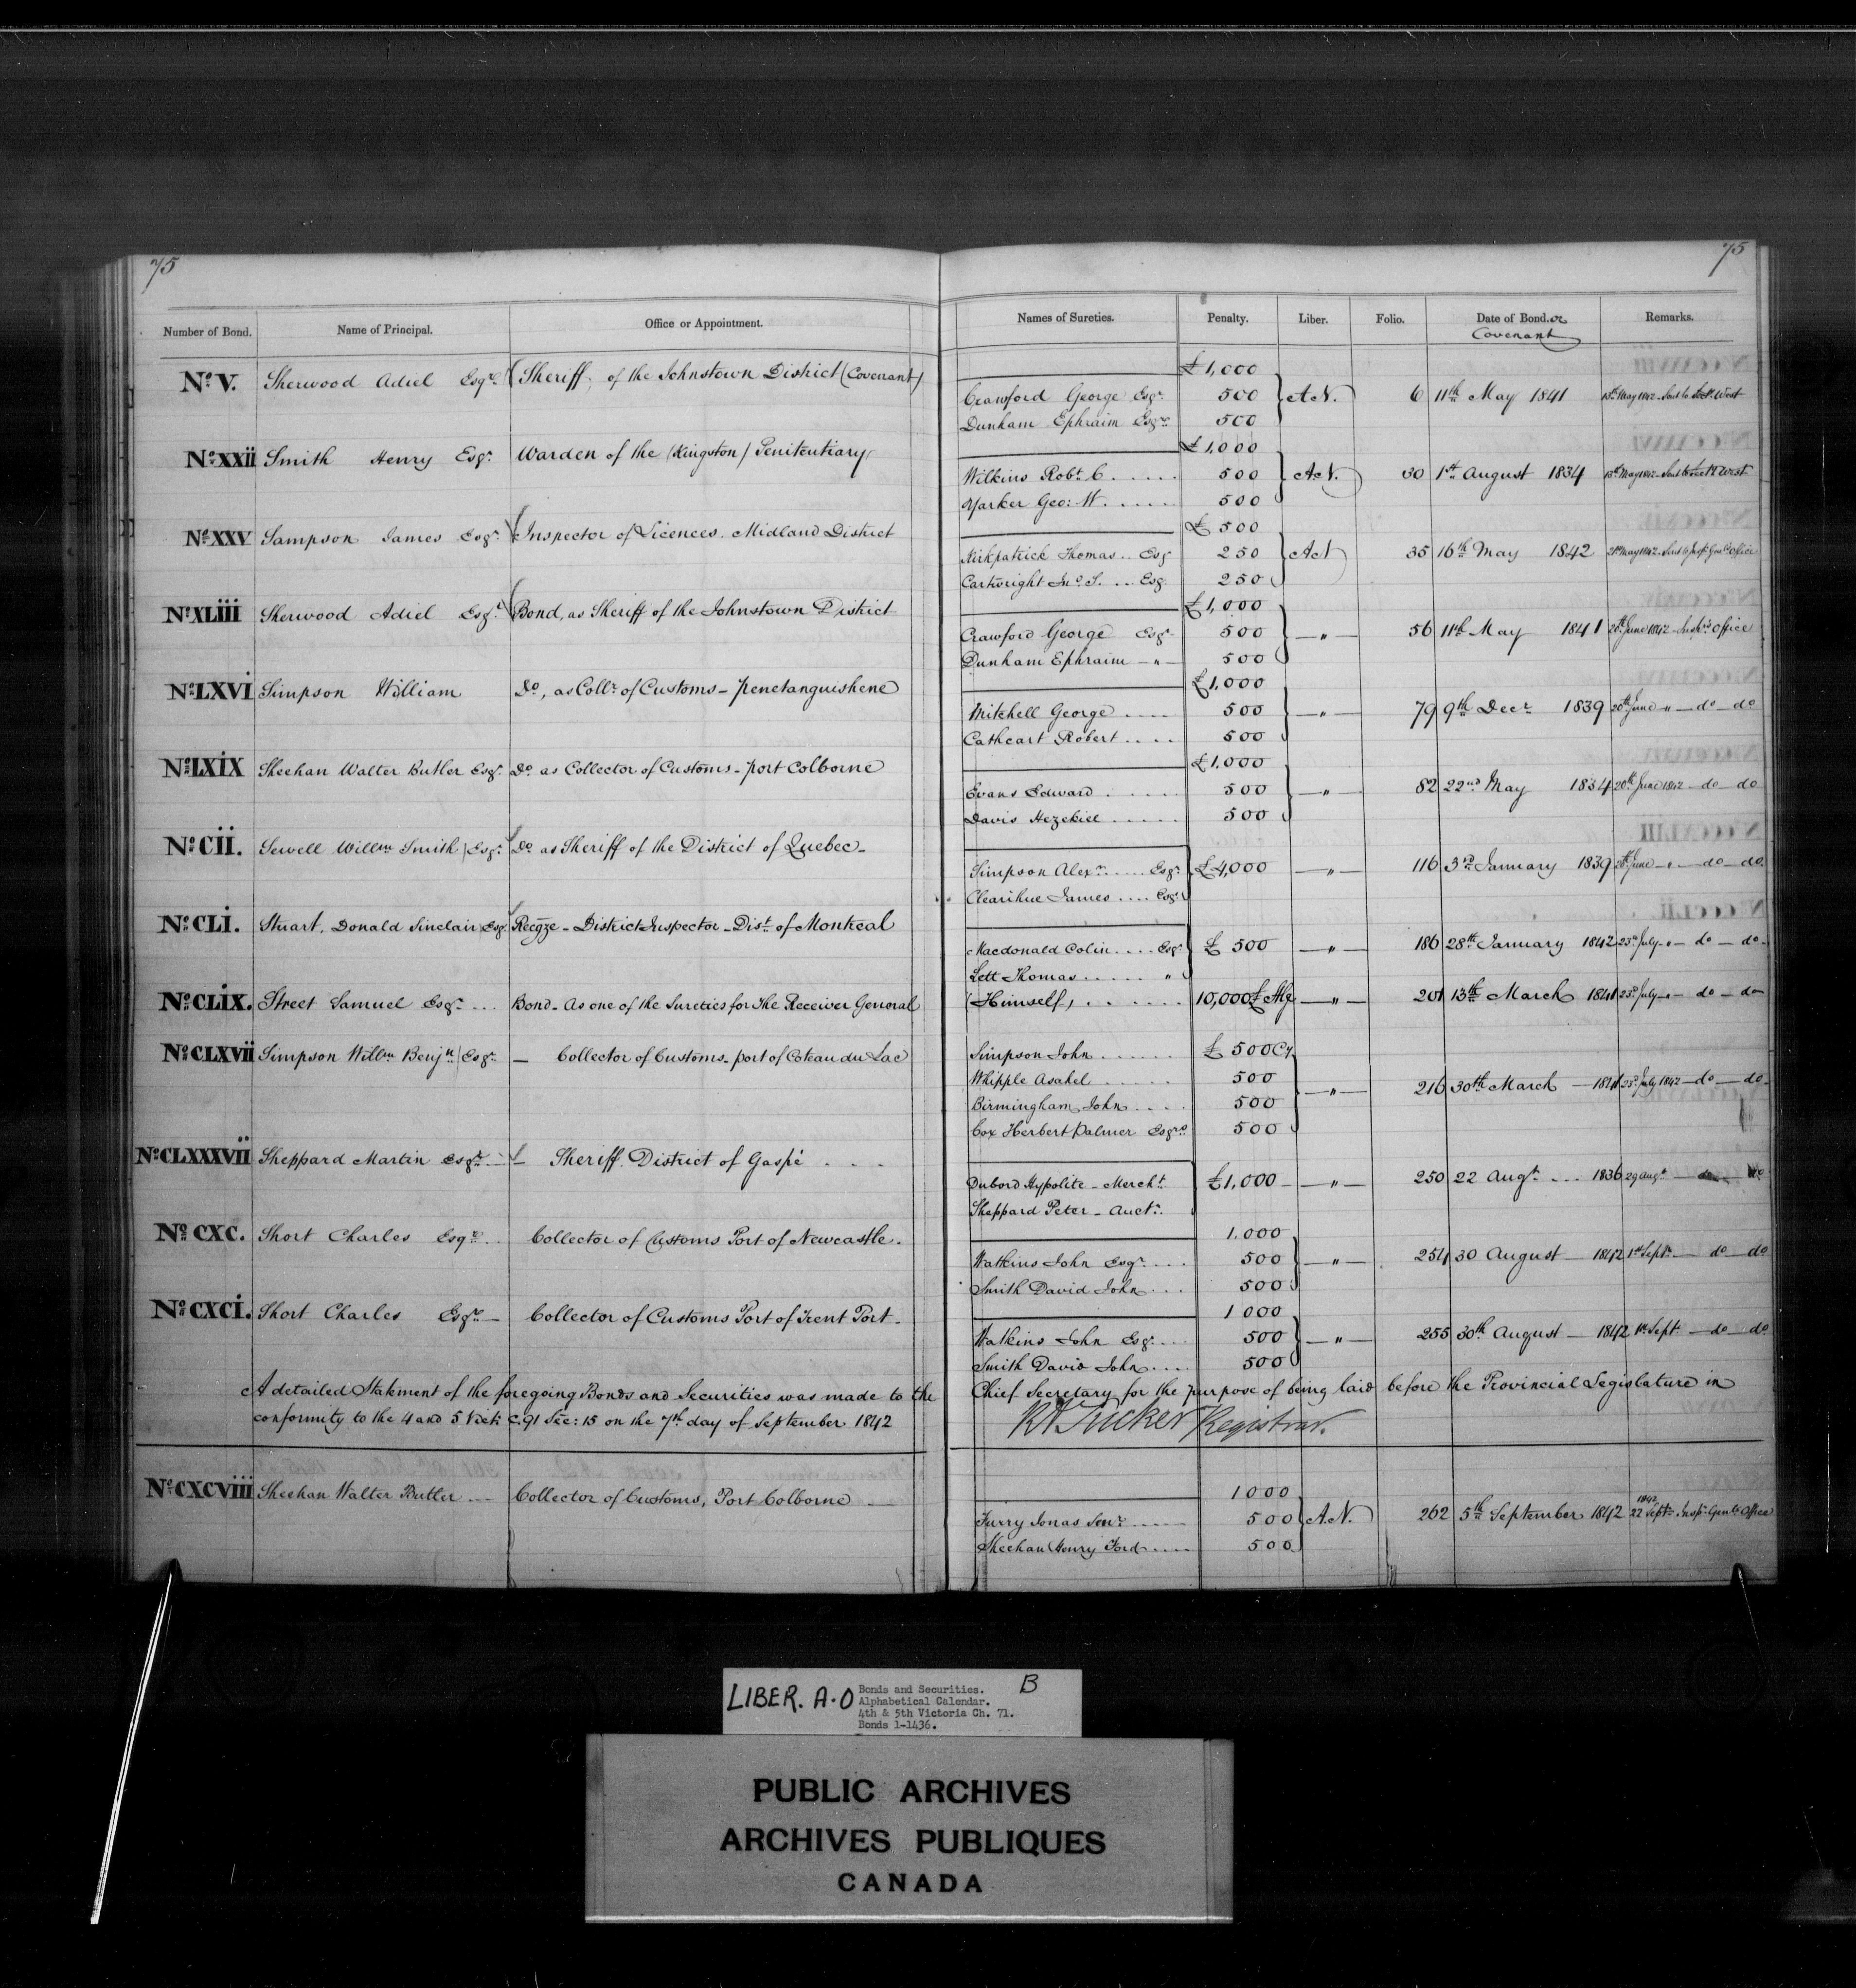 75 75
Number of Bond. Name of Principal. Office or Appointment. Names of Sureties. Penalty. Liber. Folio. Date of Bond. or Covenant Remarks.
£1,000
No. V. Sherwood Adiel Esqre. Sheriff, of the Johnstown District (Covenant)
Crawford George Esqr. 500 A.N. 6 11th May 1841 13th May 1842. Sent to Sect. West
Dunham Ephraim Esqre 500
£1,000
No. XXII Smith Henry Esqr. Warden of the (Kingston) Penitentiary
Wilkins Robt. C. ..... 500 A.N. 30 1st August 1834 13th May 1842. Sent to Sect. West
Yarker Geo: W. ..... 500
£ 500
No. XXV Sampson James Esqr. Inspector of Licences. Midland District
Kirkpatrick Thomas .. Esq 250 A.N 35 16th May 1842 21st May 1842. Sent to Insp. Genl. Office
Cartwright Jno. S. ... Esq. 250
£1,000
No. XLIII Sherwood Adiel Esqr. Bond, as Sheriff of the Johnstown District
Crawford George Esqr. 500 — " — 56 11th May 1841 20th June 1842 Office
Dunham Ephraim — " — 500
£1,000
No. LXVI Simpson William Do., as Collr. of Customs - Penetanguishene
Mitchell George .... 500 — " — 79 9th Decr. 1839 20th June " — do — do
Cathcart Robert .... 500
£1,000
No. LXIX Sheehan Walter Butler Esqr. Do. as Collector of Customs - Port Colborne
Evans Edward ..... 500 — " — 82 22nd May 1834 20th June 1842 — do — do
Davis Hezekiel ..... 500
No. CII. Sewell Willm. Smith Esqr. Do. as Sheriff of the District of Quebec.
Simpson Alexr. ..... Esqr. £4,000 — " — 116 3rd January 1839 20th June — " — do — do
Clearihue James .... Esqr.
No. CLI. Stuart, Donald Sinclair Esqr. Recgze - District Inspector - Dist. of Montreal
Macdonald Colin .... Esqr. £ 500 — " — 186 28th January 1842 23rd July — " — do — do
Lett Thomas ..... "
No. CLIX. Street Samuel Esqr. ... Bond - As one of the Sureties for the Receiver General (Himself) ...... 10,000£ Stg — " — 201 13th March 1841 23rd July — " — do — do
No. CLXVII Simpson Willm. Benjn. Esqr. — Collector of Customs - Port of Coteau du Lac Simpson John ...... £ 500 Cy
Whipple Asahel ..... 500 — " — 216 30th March — 1841 23rd July 1842 — do — do
Birmingham John .... 500
Cox Herbert Palmer Esqre. 500
No. CLXXXVII Sheppard Martin Esqre. — Sheriff. District of Gaspé ....
Dubord Hypolite - Mercht. £1,000 — " — 250 22 Augt. ... 1836 29 Augt. — do — do
Sheppard Peter - Auctr.
1.000
No. CXC. Short Charles Esqre. .. Collector of Customs Port of Newcastle.
Watkins John Esqr. .... 500 — " — 254 30 August — 1842 1st Sept. — do — do
Smith David John ... 500
1000
No. CXCI. Short Charles Esqre. — Collector of Customs Port of Trent Port.
Watkins John Esqr. .... 500 — " — 255 30th August — 1842 1st Sept — do — do
Smith David John .... 500
A detailed Statement of the foregoing Bonds and Securities was made to the Chief Secretary for the purpose of being laid before the Provincial Legislature in
conformity to the 4 and 5 Vict: C. 91 Sec: 15 on the 7th day of September 1842
R A Tucker Registrar.
1000
No. CXCVIII Sheehan Walter Butler — Collector of Customs, Port Colborne —
Furry Jonas Senr. ..... 500 A.N. 262 5th September 1842 1842 22 Septr. Inspr. Genl's Office
Sheehan Henry Ford .... 500
LIBER. A-O Bonds and Securities. B
Alphabetical Calendar.
4th & 5th Victoria Ch. 71.
Bonds 1-1436.
PUBLIC ARCHIVES
ARCHIVES PUBLIQUES
CANADA